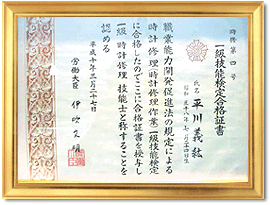 時修第四号
一級技能検定合格証書
氏名 平川義紘
職業能力開発促進法の規定による
時計修理(時計修理作業)一級技能検定
に合格したのでここに合格証書を授与し
一級時計修理技能士と称することを
認める
平成十年三月二十七日
労働大臣 伊吹文明